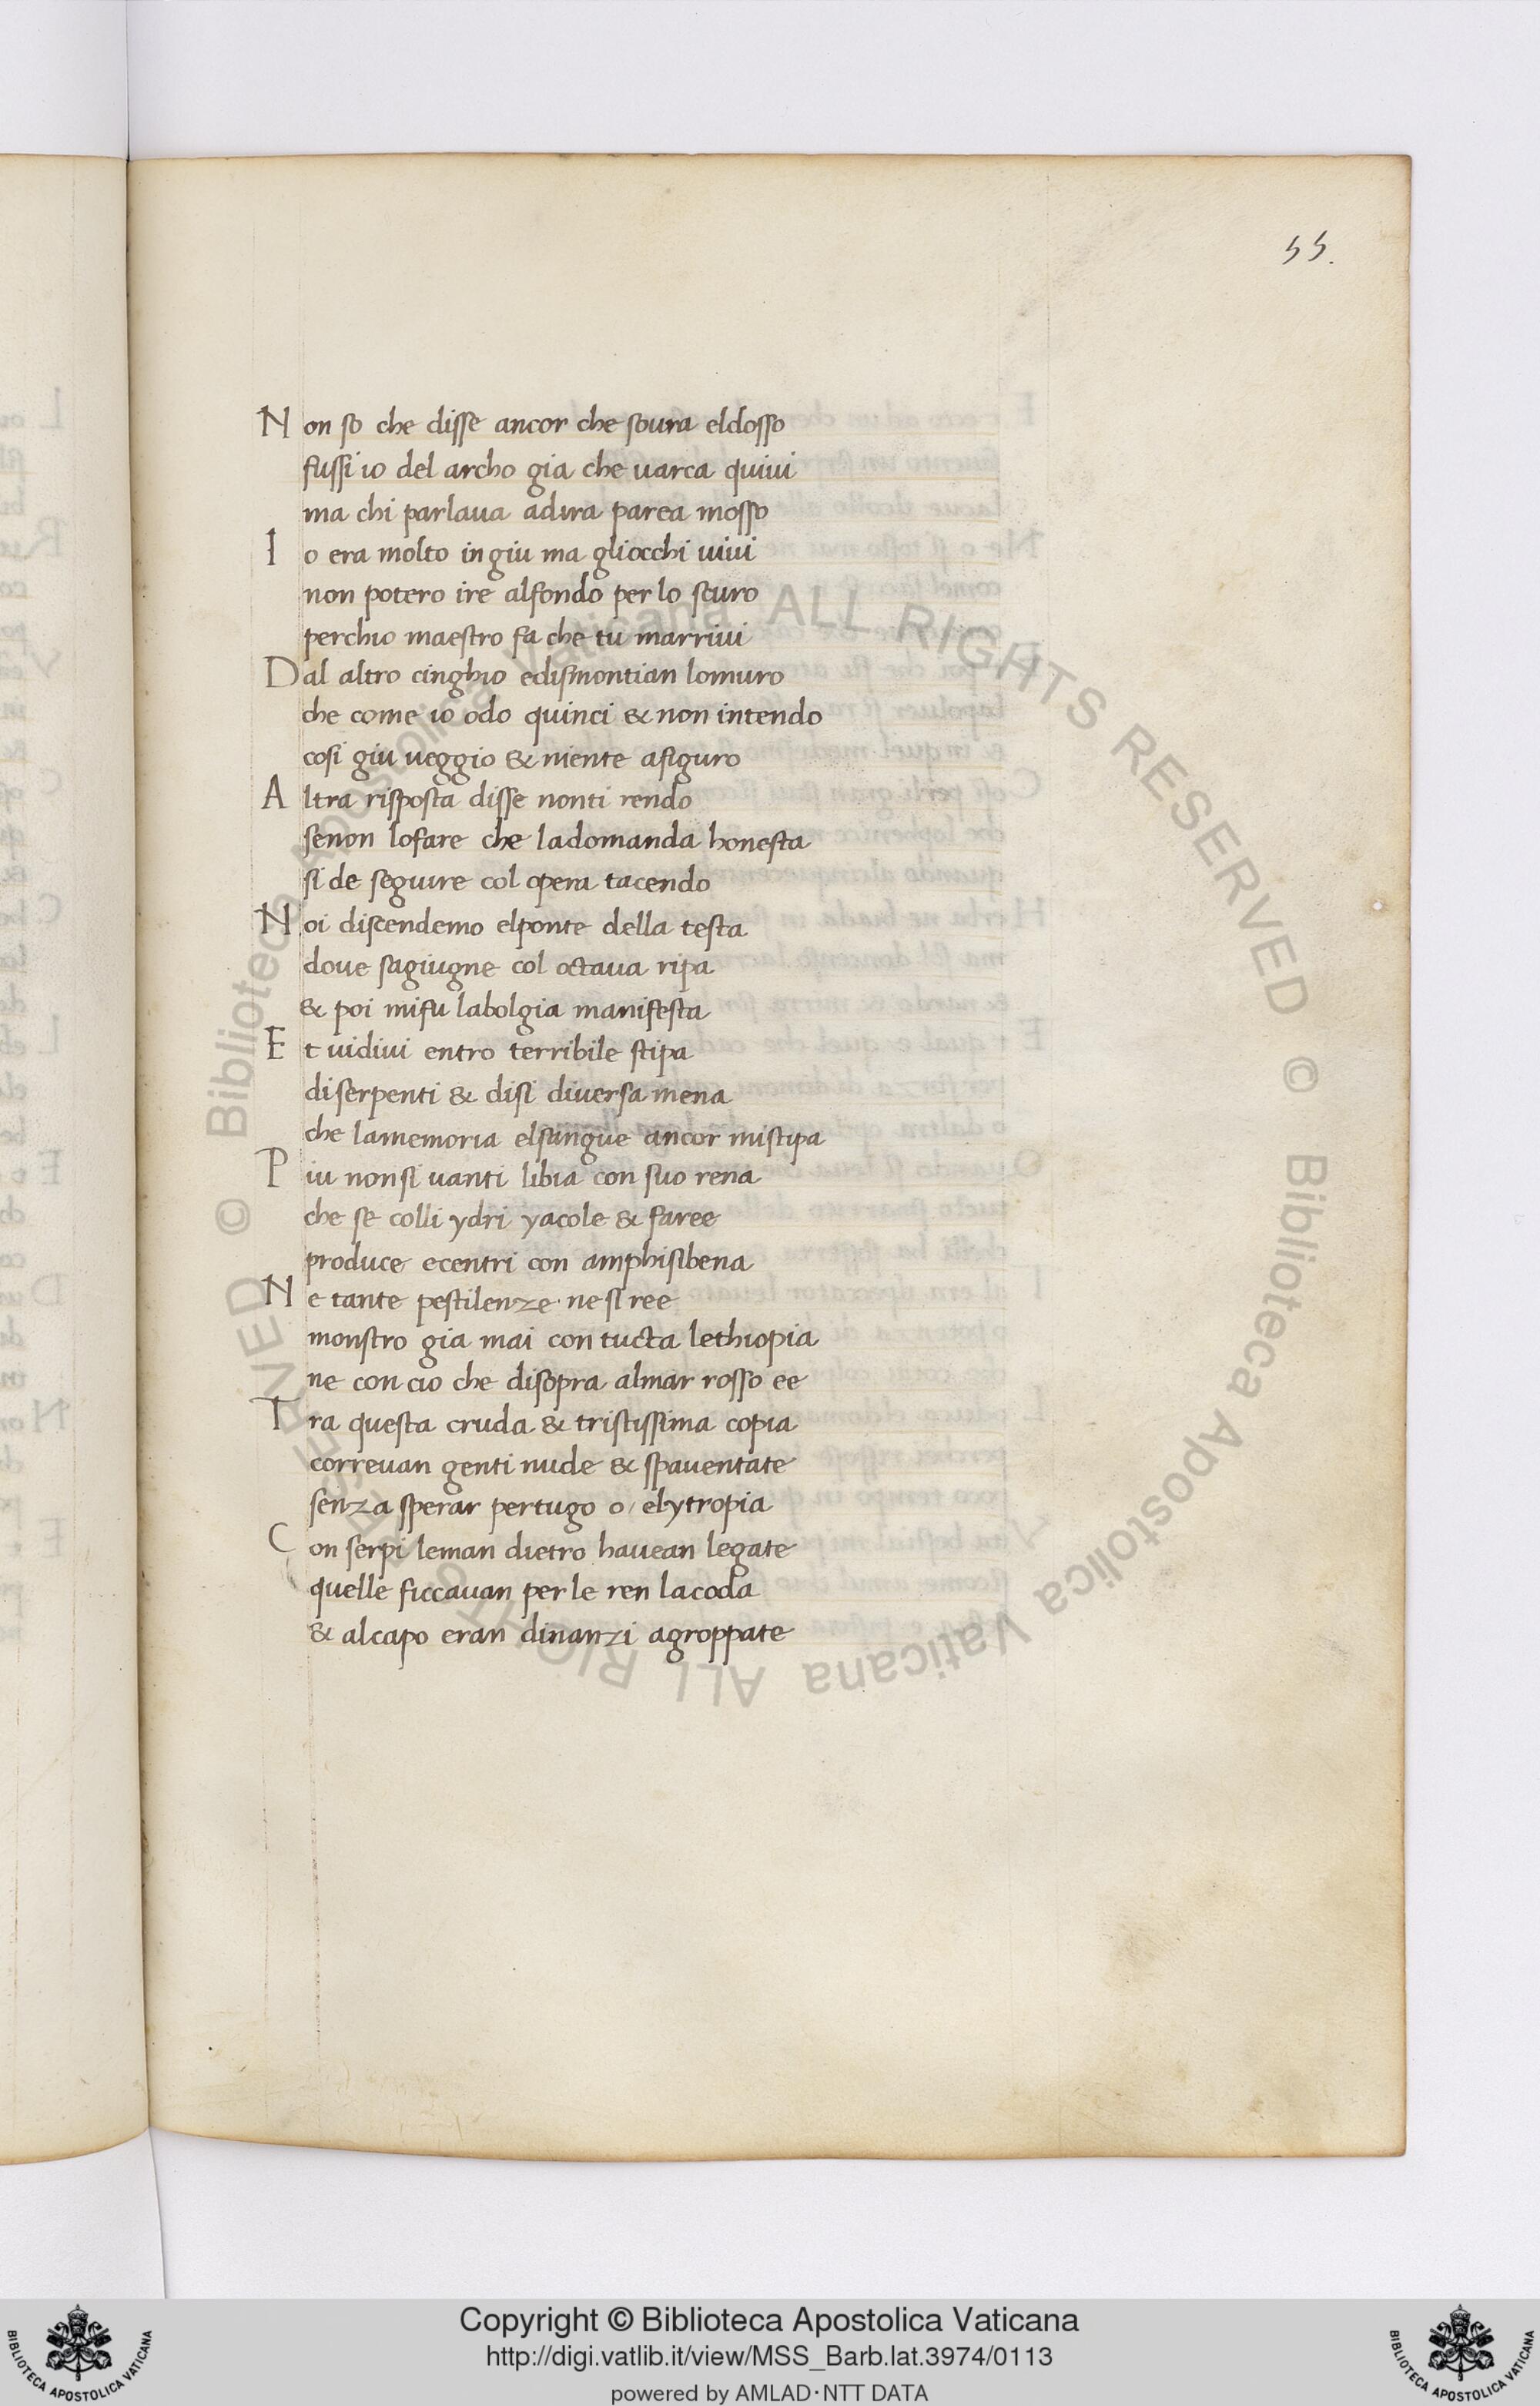 55.
Non so che disse ancor che soura eldosso
fussi io del archo gia che uarca quiui
ma chi parlaua adira parea mosso
Io era molto ingiu ma gliocchi uiui
non potero ire alfondo per lo scuro
perchio maestro fa che tu marriui
Dal altro cinghio edismontian lomuro
che come io odo quinci & non intendo
cosi giu ueggio & niente afiguro
Altra risposta disse nonti rendo
senon lofare che ladomanda honesta
si de seguire col opera tacendo
Noi discendemo elponte della testa
doue sagiugne col octaua ripa
& poi mifu labolgia manifesta
Et uidiui entro terribile stipa
diserpenti & disi diuersa mena
che lamemoria elsangue ancor mistipa
Piu nonsi uanti libia con suo rena
che se colli ydri yacole & faree
produce ecentri con amphisibena
Ne tante pestilenze· ne si ree
monstro gia mai con tucta lethiopia
ne con cio che disopra almar rosso ee
Tra questa cruda & tristissima copia
correuan genti nude & spauentate
senza sperar pertugo o/ elytropia
Con serpi leman dietro hauean legate
quelle ficcauan per le ren lacoda
& alcapo eran dinanzi agroppate
© Biblioteca Apostolica Vaticana ALL RIGHTS RESERVED © Biblioteca Apostolica Vaticana ALL RIGHTS RESERVED
Copyright © Biblioteca Apostolica Vaticana
http://digi.vatlib.it/view/MSS_Barb.lat.3974/0113
powered by AMLAD·NTT DATA
BIBLIOTECA APOSTOLICA VATICANA
BIBLIOTECA APOSTOLICA VATICANA